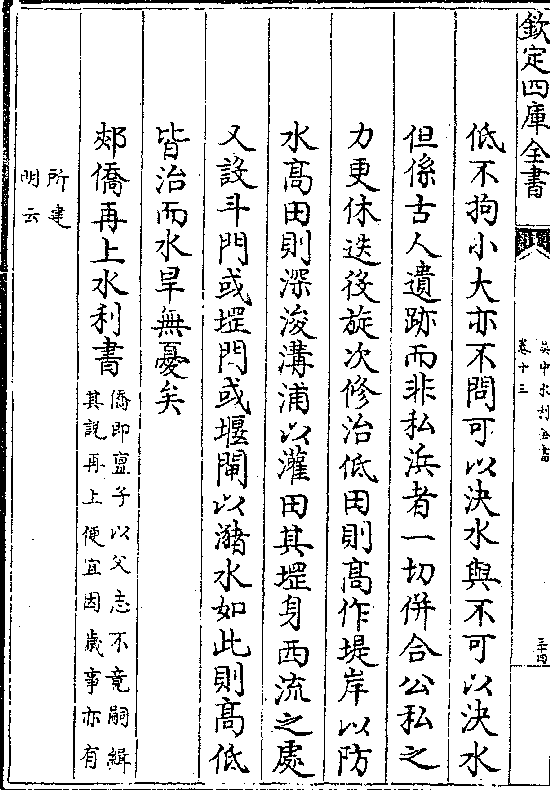 欽定四庫全書
吳中水利全書
卷十三
三十四
低不拘小大亦不問可以決水與不可以決水
但係古人遺跡而非私浜者一切併合公私之
力更休迭役旋次修治低田則高作堤岸以防
水高田則深浚溝浦以灌田其堽身西流之處
又設斗門或堽門或堰閘以瀦水如此則高低
皆治而水旱無憂矣
郟僑再上水利書
僑即亶子以父志不竟嗣緝
其說再上便宜因歲事亦有
所建
明云